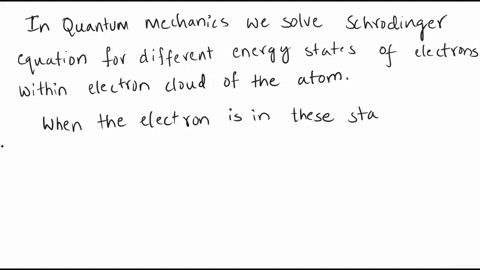 In Quantum mechanics we solve Schrodinger
equation for different energy states of electrons
within electron cloud of the atom.
When the electron is in these sta